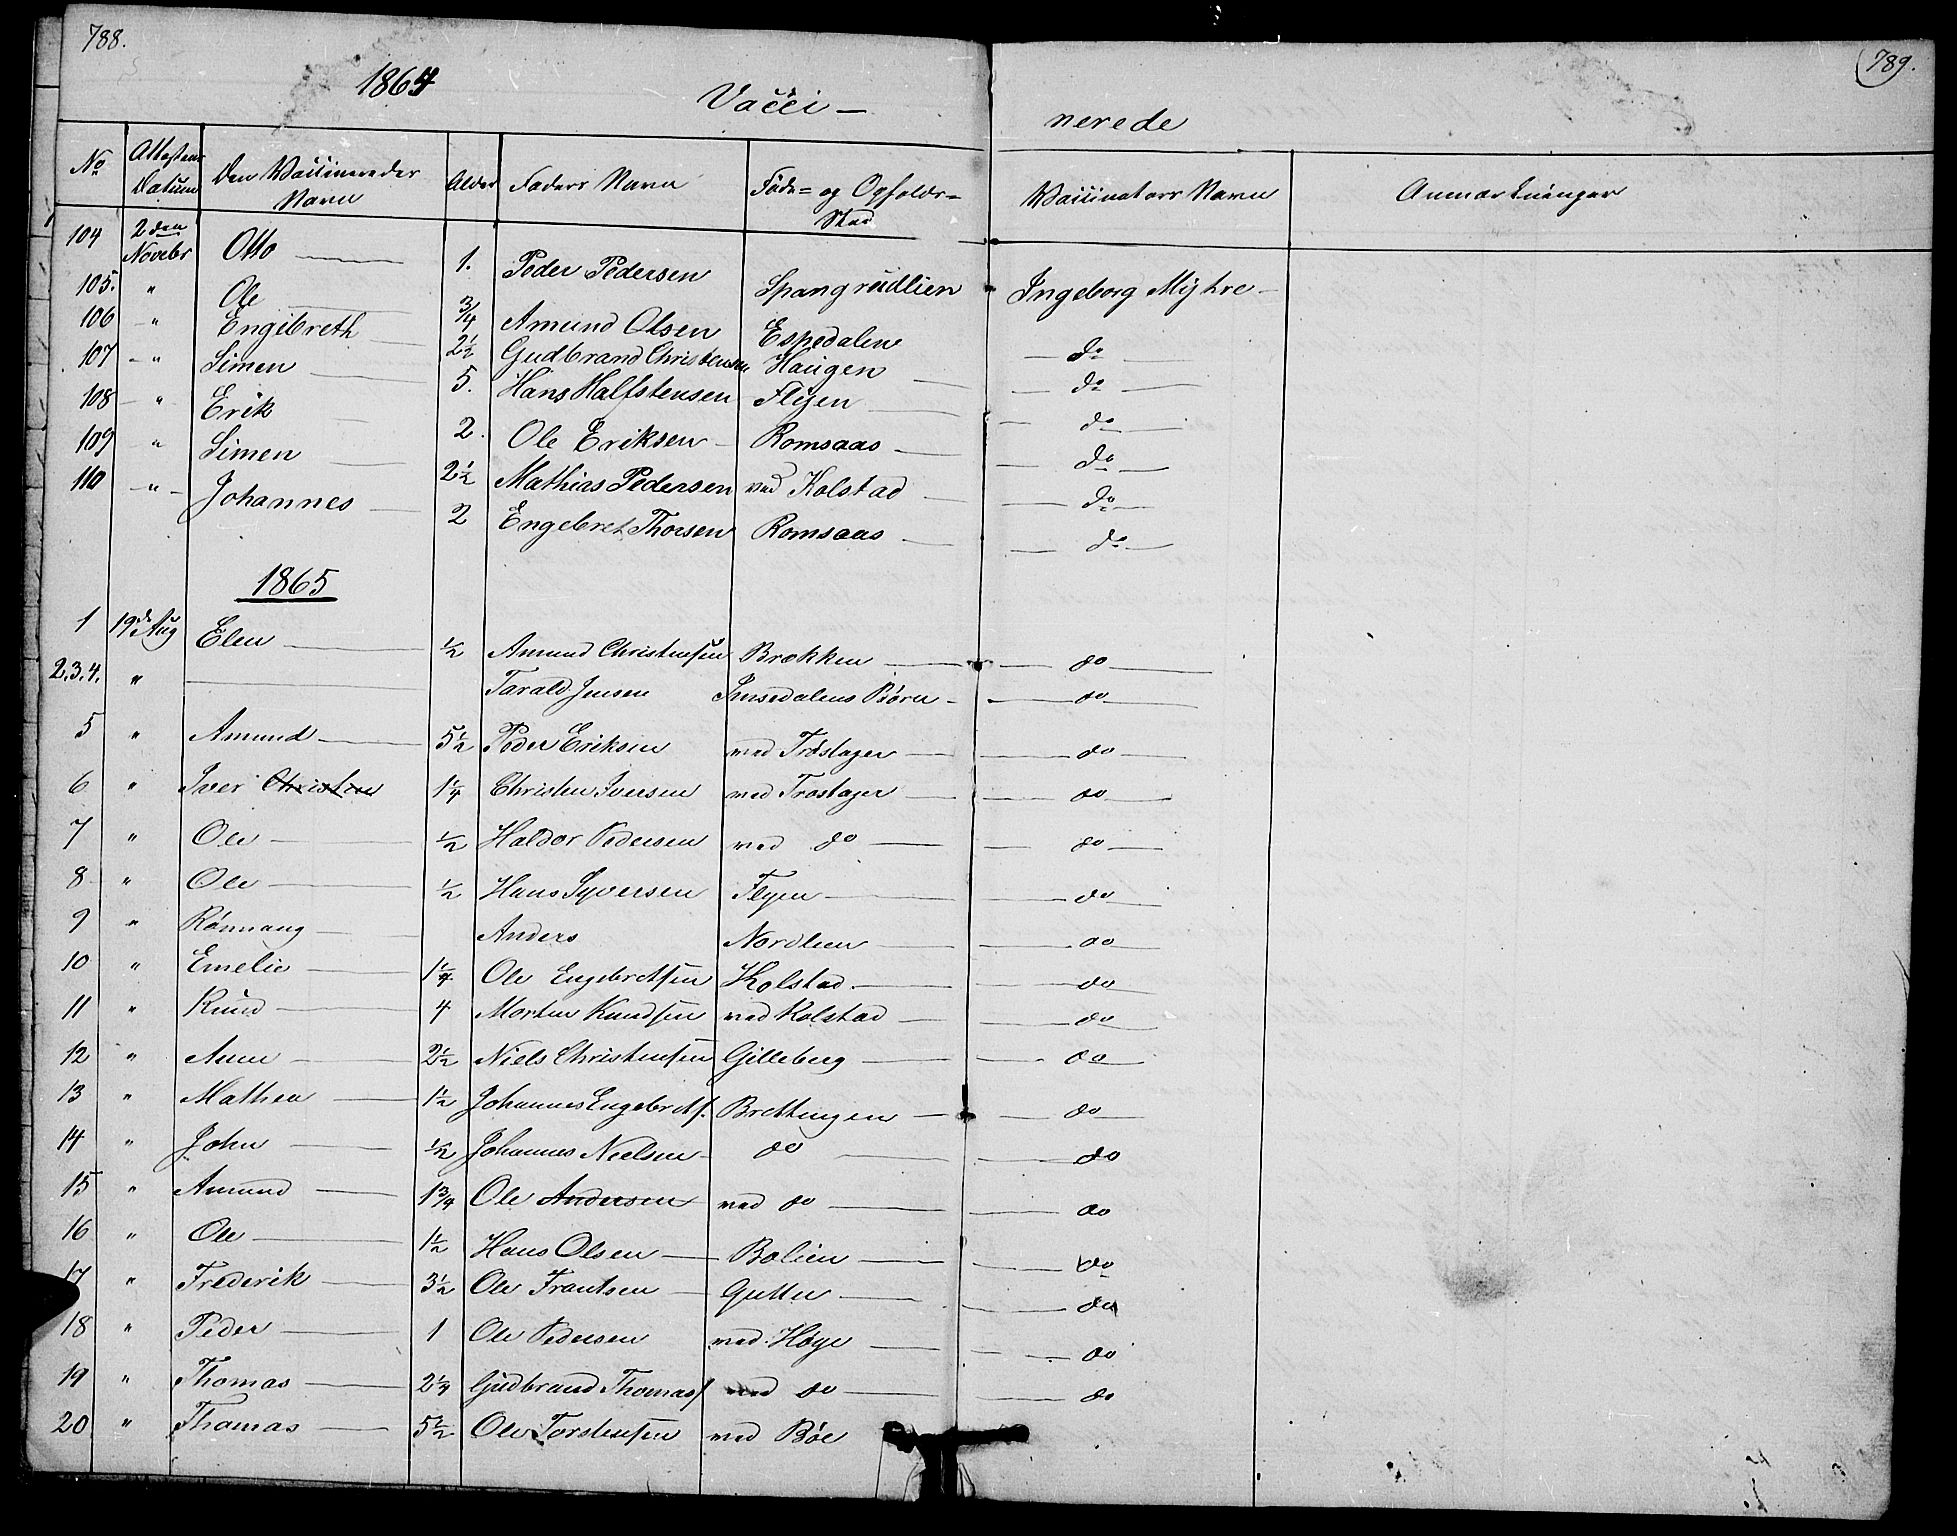 788.
789.
1864
Vacci-
nerede
No Attestens Datum Den Vaccineredes Navn Alder Faders Navn Føde= og Opholds= Sted Vaccinators Navn Anmærkninger
104 2den Novebr Otto 1. Peder Pedersen Spangrudlien Ingeborg Myhre
105. " Ole 3/4 Amund Olsen Espedalen do
106 " Engebreth 2 1/2 Gudbrand Christensen Haugen do
107 " Simen 5. Hans Halfstensen Flyen do
108 " Erik 2. Ole Eriksen Romsaas do
109 " Simen 2 1/2 Mathias Pedersen ved Kolstad do
110 " Johannes 2 Engebret Thorsen Romsaas do
1865
1 19de Aug Elen 1/2 Amund Christensen Brækken do
2.3.4. " Tarald Jensen Imsedalens Børn do
5 " Amund 5 1/2 Peder Eriksen ved Trøstager do
6 " Iver Christen 1 1/4 Christen Iversen ved Trøstager do
7 " Ole 1/2 Haldor Pedersen ved do do
8 " Ole 1/2 Hans Syversen Flyen do
9 " Rønnaug Anders Nordlien do
10 " Emelie 1 1/4 Ole Engebretsen Kolstad do
11 " Knud 4 Morten Knudsen ved Kolstad do
12 " Anne 2 1/2 Niels Christensen Gilleberg do
13 " Mathea 1 1/2 Johannes Engebrets. Brettingen do
14 " John 1/2 Johannes Nielsen do do
15 " Amund 1 3/4 Ole Andersen ved do do
16 " Ole 1 1/2 Hans Olsen Bolien do
17 " Frederik 3 1/2 Ole Frantsen Gutter do
18 " Peder 1 Ole Pedersen ved Høye do
19 " Thomas 2 1/4 Gudbrand Thomas ved do do
20 " Thomas 5 1/2 Ole Torstensen ved Bøe